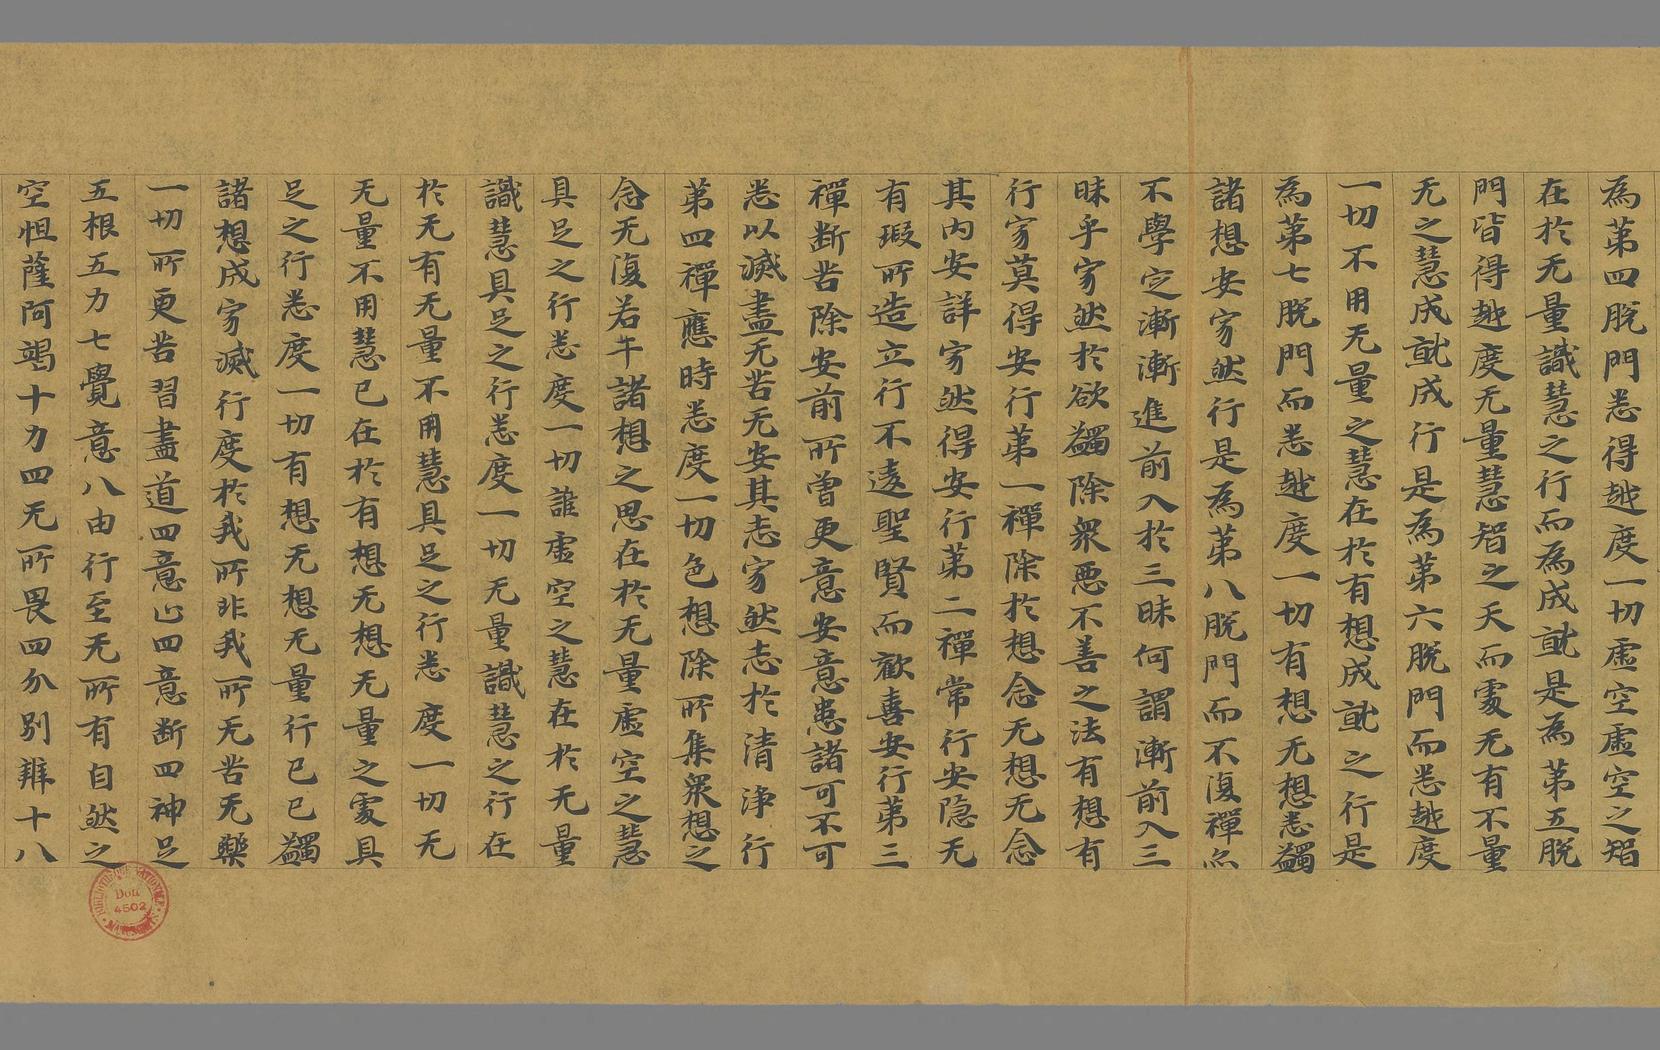 為第四脫門悉得越度一切虛空虛空之智
在於无量識慧之行而為成就是為第五脫
門皆得越度无量慧智之天而處无有不量
无之慧成就成行是為第六脫門而悉越度
一切不用无量之慧在於有想成就之行是
為第七脫門而悉越度一切有想无想悉蠲
諸想安家然行是為第八脫門而不復禪亦
不學定漸漸進前入於三昧何謂漸前入三
昧乎家然於欲蠲除眾惡不善之法有想有
行家莫得安行第一禪除於想念无想无念
其內安詳家然得安行第二禪常行安隱无
有瑕所造立行不遠聖賢而歡喜安行第三
禪斷苦除安前所曾更意安意患諸可不可
悉以滅盡无苦无安其志家然志於清淨行
第四禪應時悉度一切色想除所集眾想之
念无復若干諸想之思在於无量虛空之慧
具足之行悉度一切誰虛空之慧在於无量
識慧具足之行悉度一切无量識慧之行在
於无有无量不用慧具足之行悉度一切无
无量不用慧已在於有想无想无量之處具
足之行悉度一切有想无想无量行已已蠲
諸想成家滅行度於我所非我所无苦无樂
一切所更苦習盡道四意止四意斷四神足
五根五力七覺意八由行至无所有自然之
空怛薩阿竭十力四无所畏四分別辯十八
BIBLIOTHEQUE NATIONALE
Don
4502
MANUSCRITS